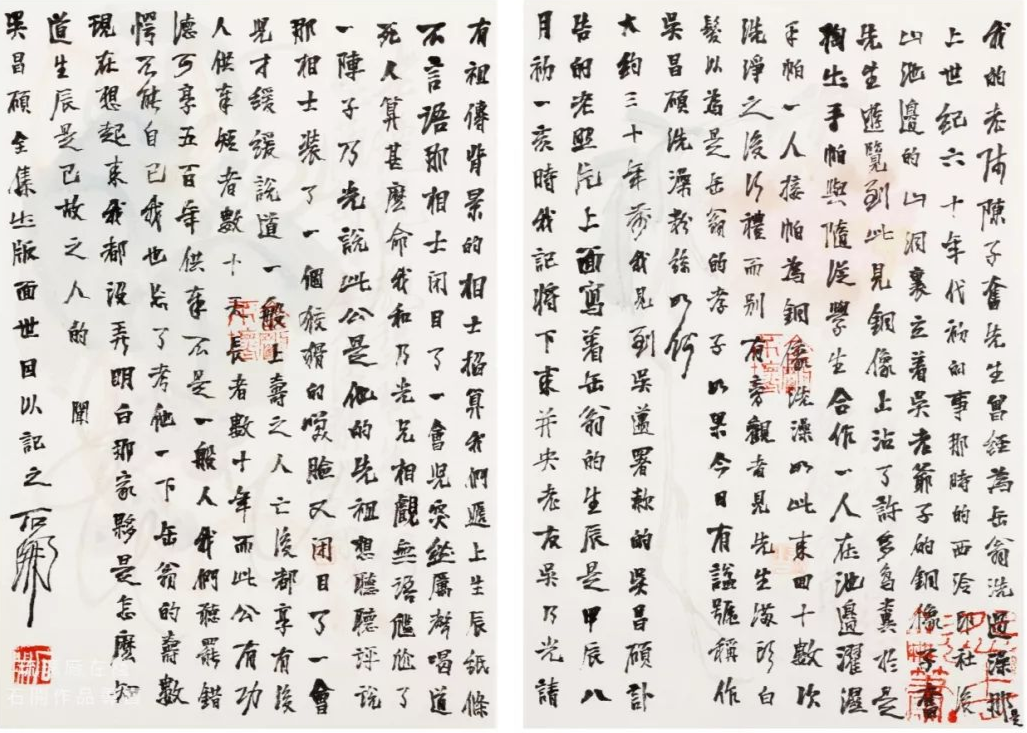 我的老師陳子奮先生曾經為缶翁洗過澡那是
上世紀六十年代初的事那時的西泠印社後
山池邊的山洞裏立着吳老爺子的銅像子奮
先生遊覽到此見銅像上沾了許多鳥糞於是
掏出手帕與隨從學生合作一人在池邊濯濕
手帕一人接帕為銅像洗澡如此來回十數次
洗淨之後行禮而別有旁觀者見先生滿頭白
髮以為是缶翁的孝子如果今日有諡號稱作
吳昌碩洗澡粉絲如何
大約三十年前我見到吳邁署款的吳昌碩訃
告的老照片上面寫着缶翁的生辰是甲辰八
月初一亥時我記將下來并央老友吳乃光請
有祖傳背景的相士招算我們遞上生辰紙條
不言語那相士閉目了一會兒突然厲聲喝道
死人算甚麼命我和乃光兄相覷無語尷尬了
一陣子乃光說此公是他的先祖想聽聽評說
那相士裝了一個狡猾的笑臉又閉目了一會
兒才緩緩說道一般上壽之人亡後都享有後
人供奉短者數十天長者數十年而此公有功
德可享五百年供奉不是一般人我們聽罷錯
愕不能自已我也忘了考他一下缶翁的壽數
現在想起來我都沒弄明白那家夥是怎麼知
道生辰是已故之人的 聞
吳昌碩全集出版面世因以記之 石開
石開作品專店